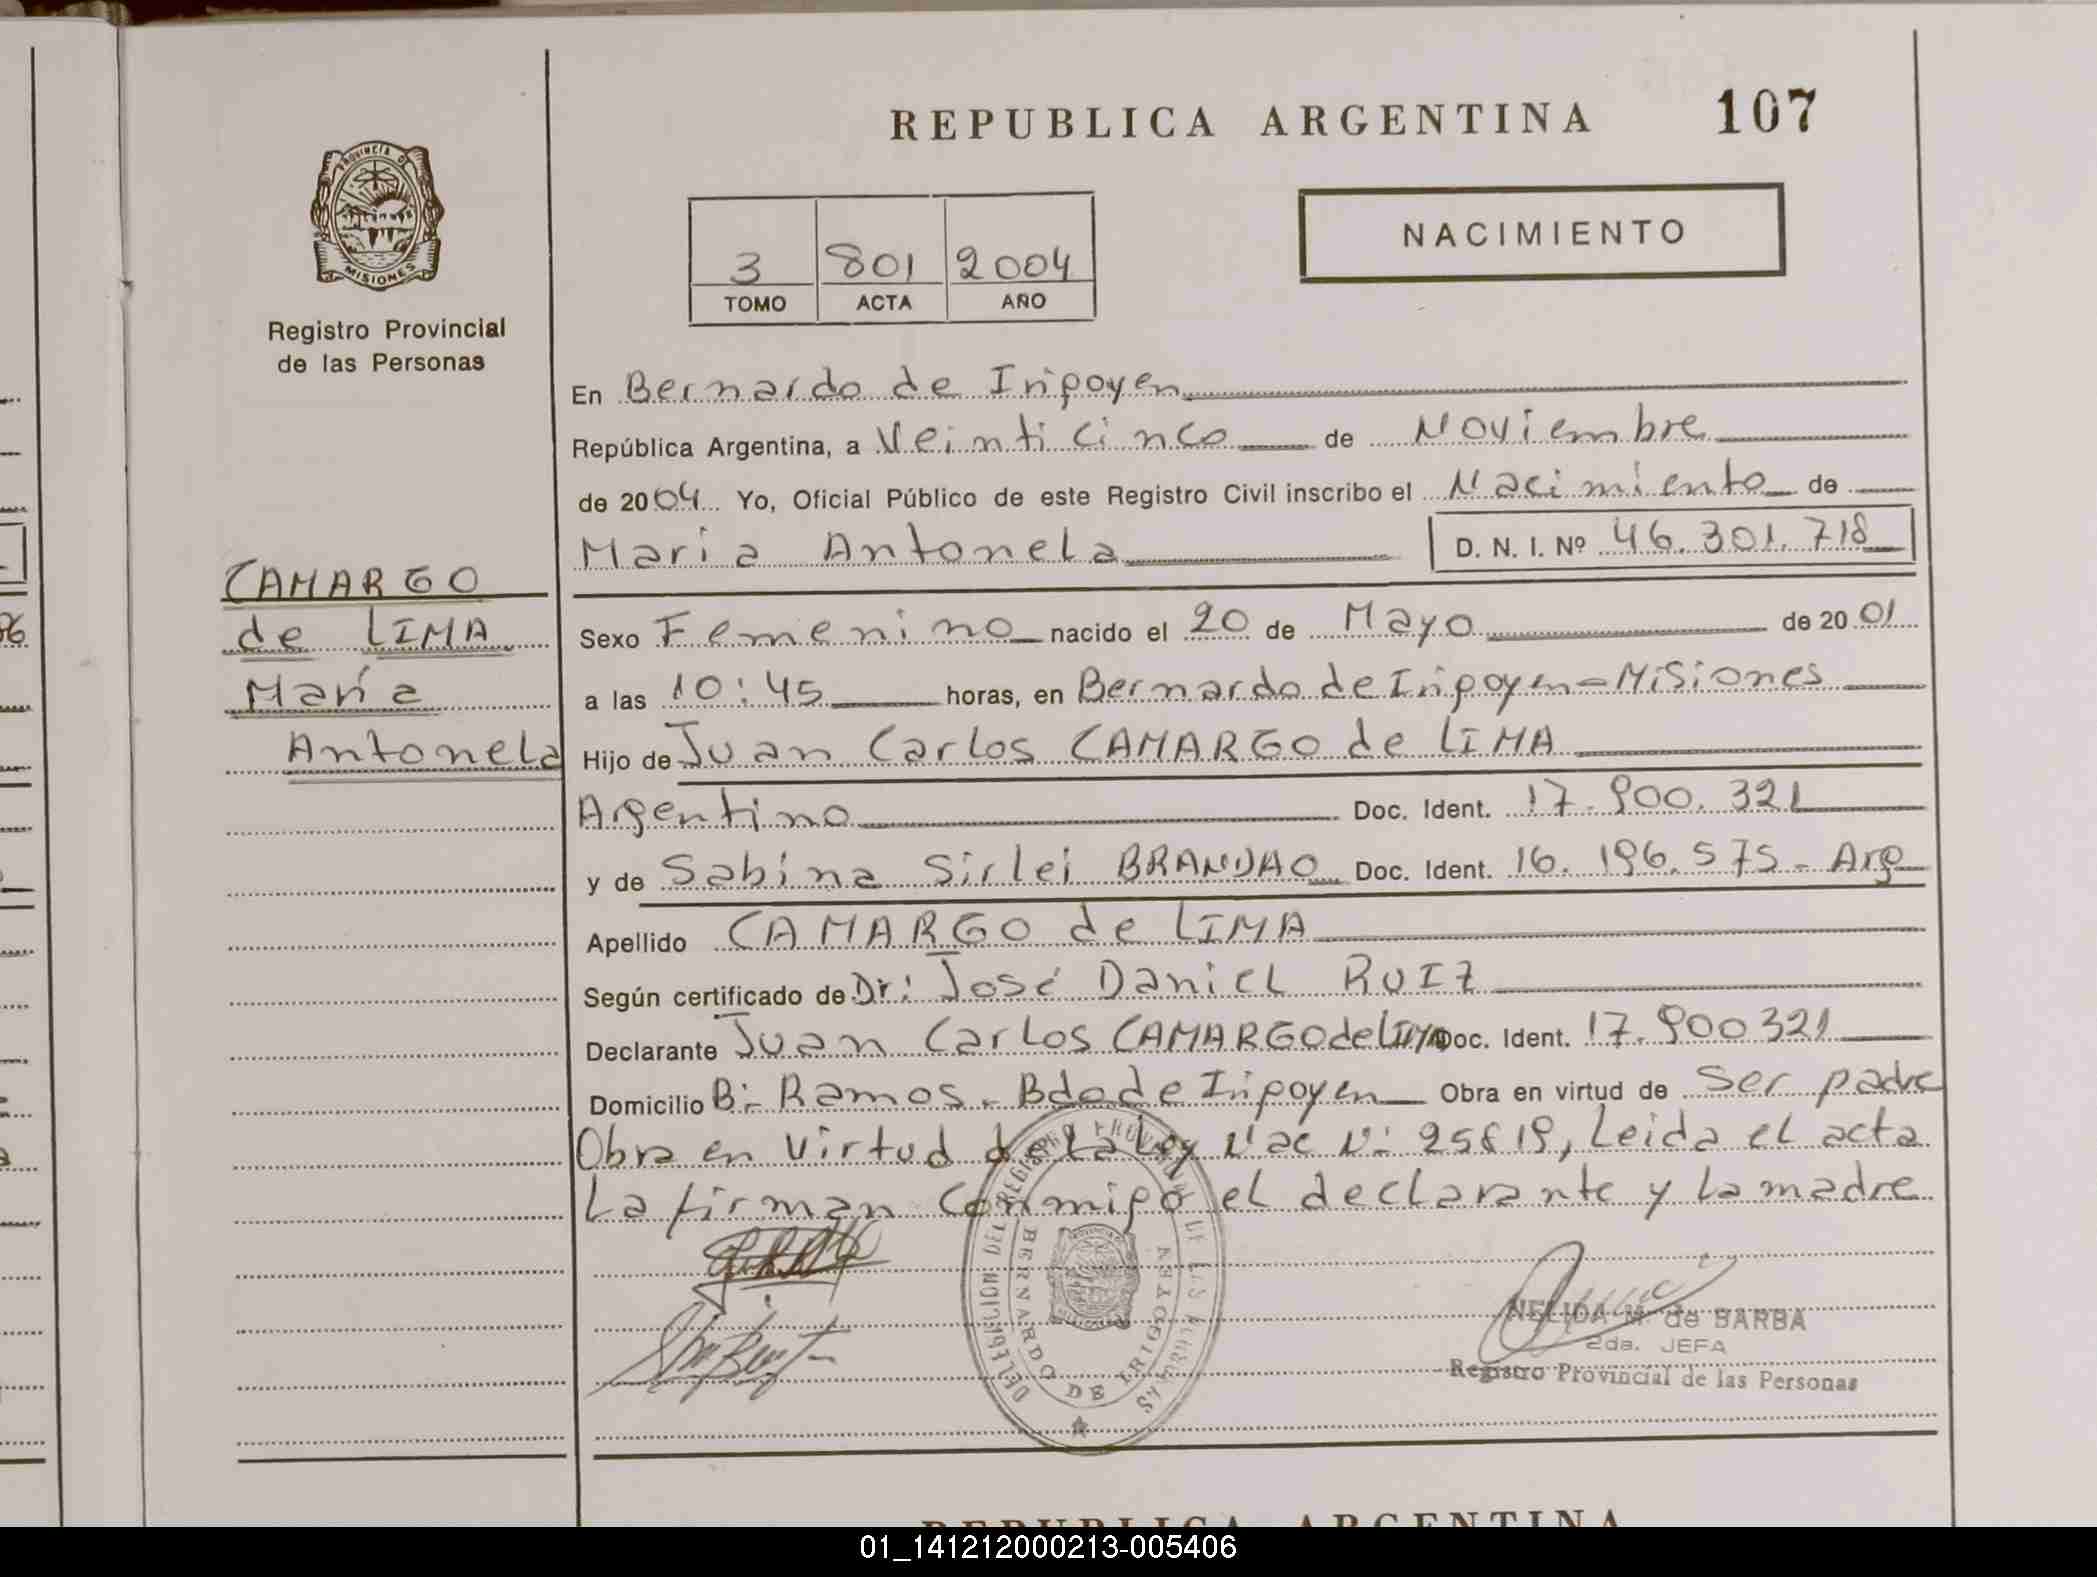 REPUBLICA ARGENTINA 107
PROVINCIA DE
MISIONES
Registro Provincial
de las Personas
3 801 2004
TOMO ACTA AÑO
NACIMIENTO
En Bernardo de Irigoyen
República Argentina, a Veinticinco de Noviembre
de 2004 Yo, Oficial Público de este Registro Civil inscribo el Nacimiento de
Maria Antonela D. N. I. Nº 46.301.718
CAMARGO
de LIMA
María
Antonela
Sexo Femenino nacido el 20 de Mayo de 2001
a las 10:45 horas, en Bernardo de Irigoyen - Misiones
Hijo de Juan Carlos CAMARGO de LIMA
Argentino Doc. Ident. 17.900.321
y de Sabina Sirlei BRANDAO Doc. Ident. 16.196.575 - Arg
Apellido CAMARGO de LIMA
Según certificado de Dr: José Daniel RUIZ
Declarante Juan Carlos CAMARGO de LIMA Doc. Ident. 17.900321
Domicilio Bº Ramos - Bdo de Irigoyen Obra en virtud de Ser padre
Obra en virtud de la Ley Nac Nº 25819, Leida el acta
La firman conmigo el declarante y la madre
DELEGACION DEL REGISTRO PROVINCIAL DE LAS PERSONAS
BERNARDO DE IRIGOYEN
NELIDA M. de BARBA
2da. JEFA
Registro Provincial de las Personas
REPUBLICA ARGENTINA
01_141212000213-005406